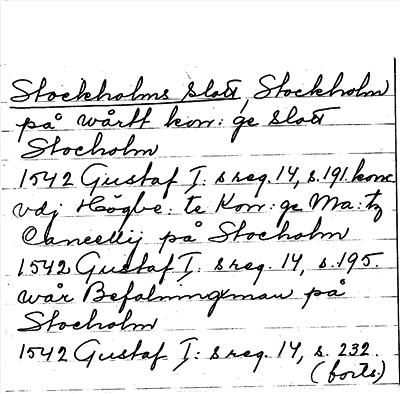 Stockholms slott, Stockholm
på wårtt kon: ge slott
Stocholm
1542 Gustaf I: s reg. 14, s. 191. konc
vdj Högbe: te Kon: ge Ma: tz
Cancellij på Stocholm
1542 Gustaf I: s reg. 14, s. 195.
wår Befalningxman på
Stocholm
1542 Gustaf I: s reg. 14, s. 232.
(forts.)